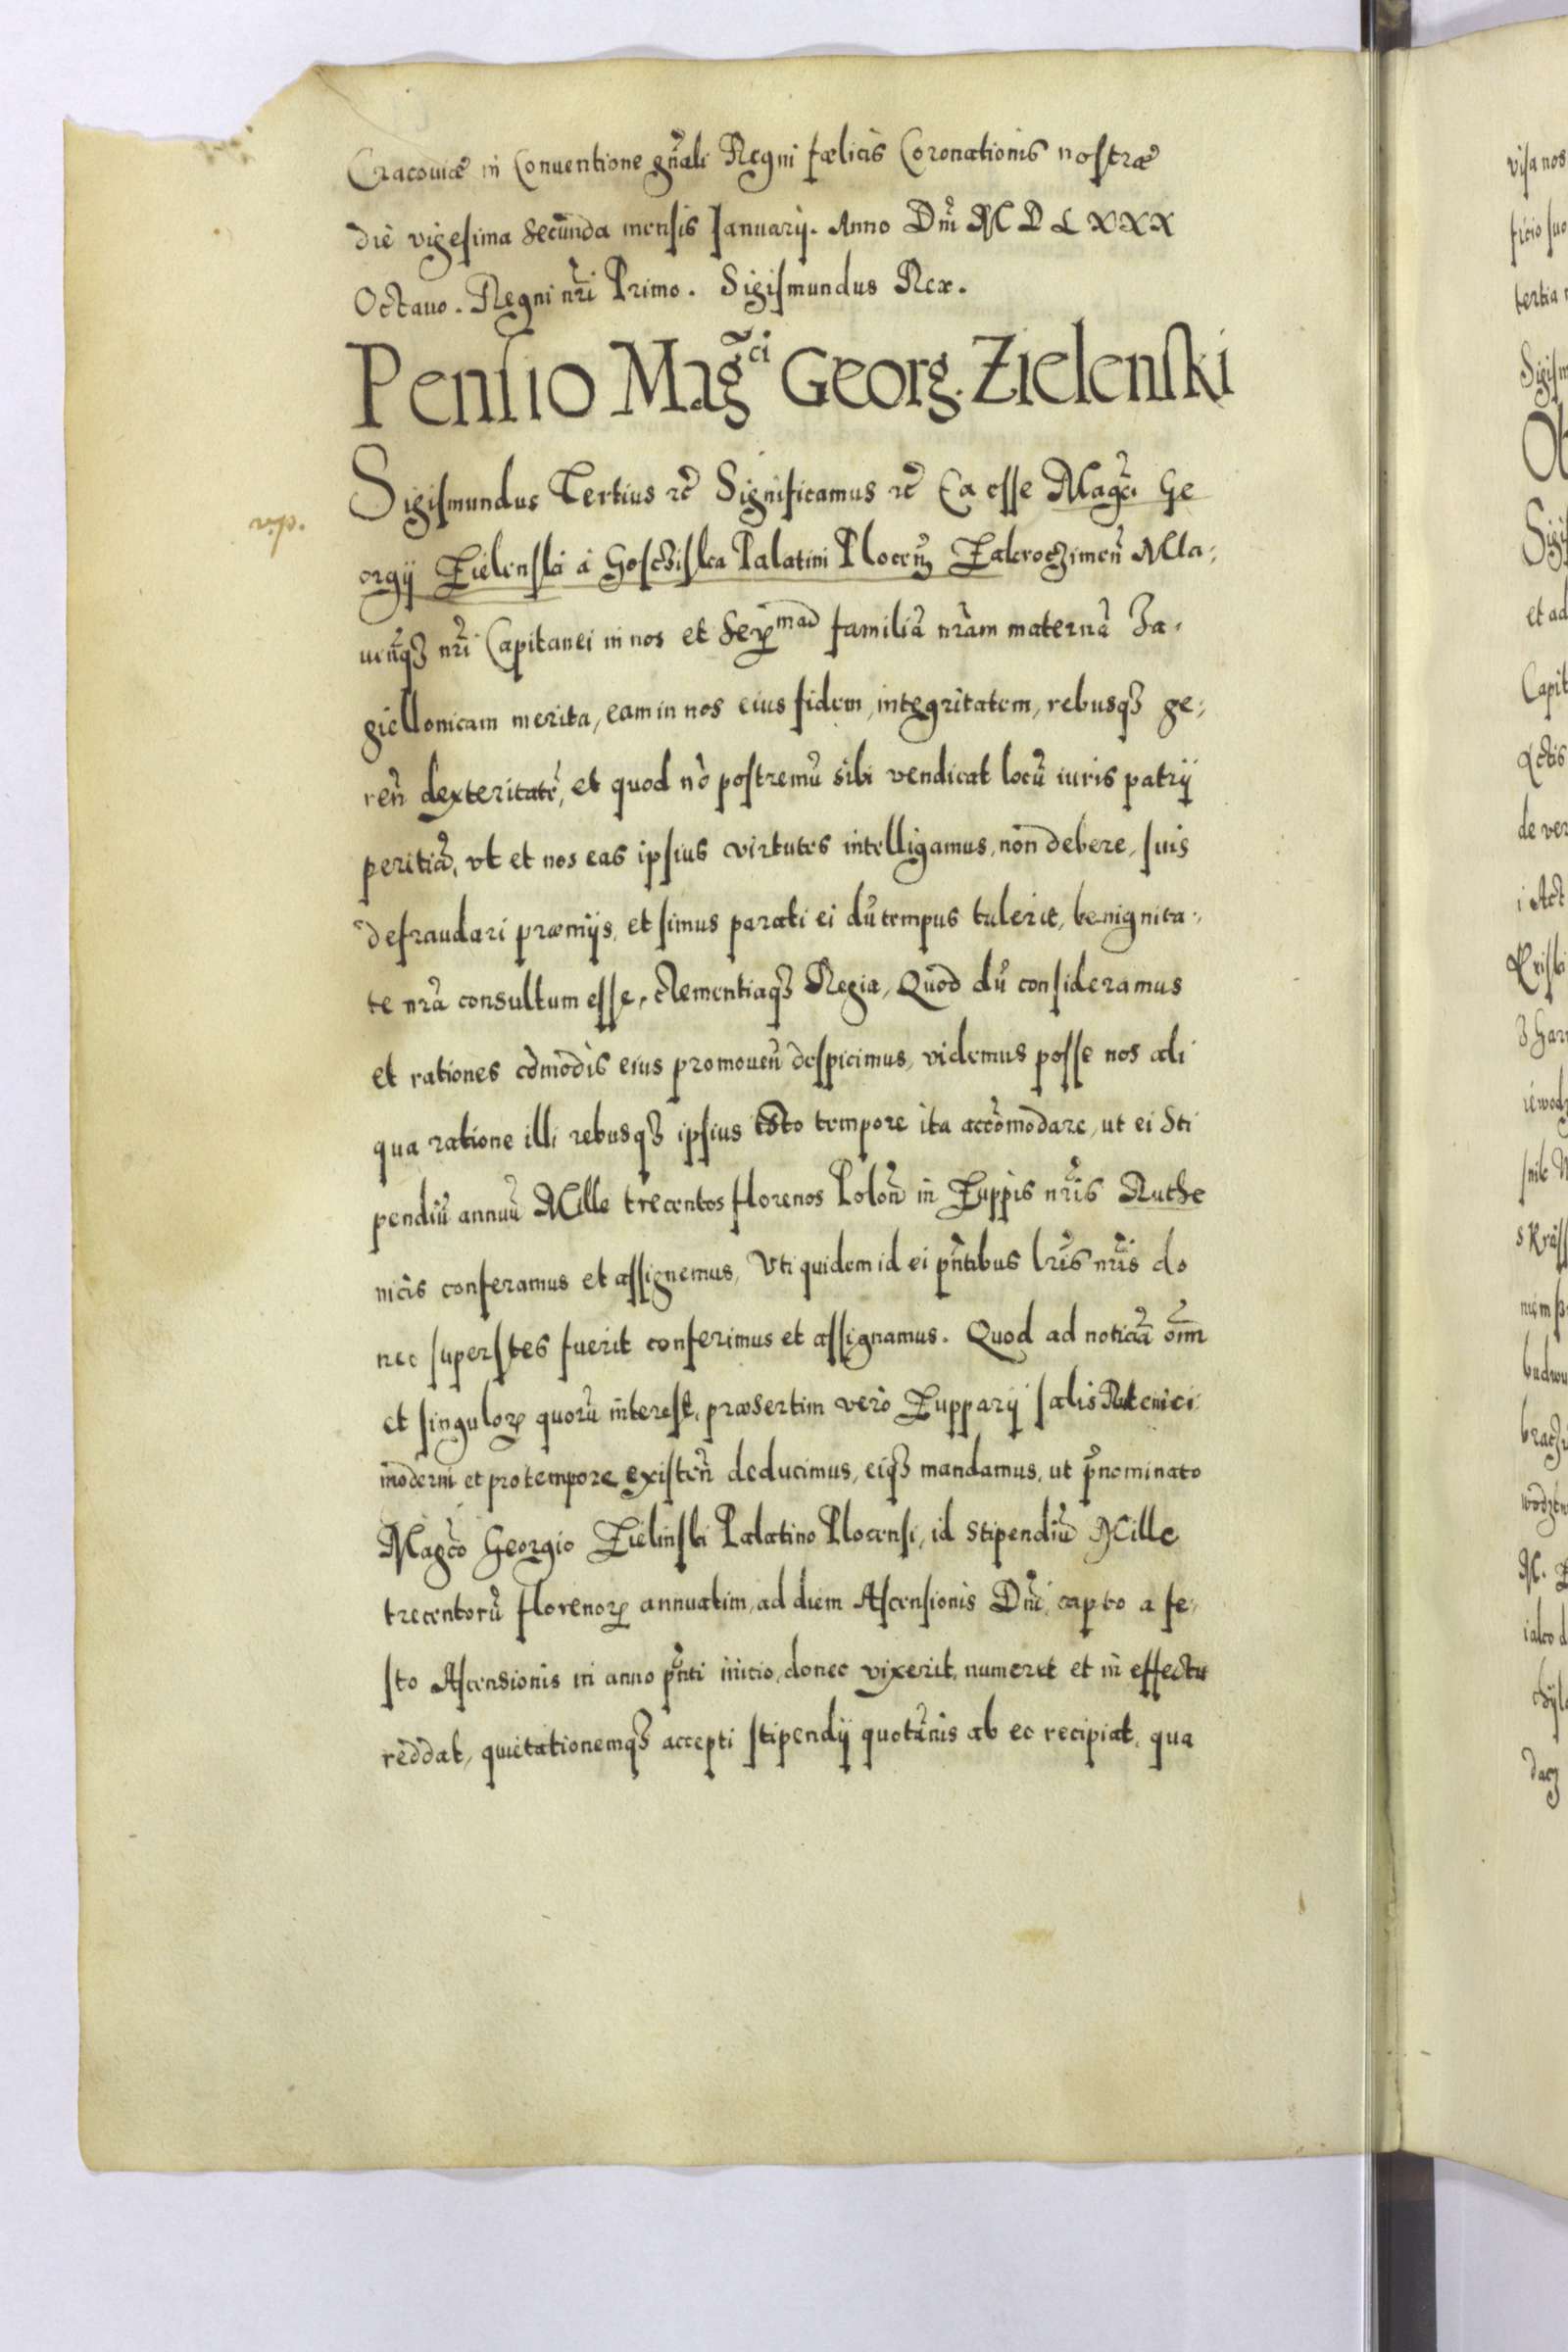 Cracouiæ in Conuentione gñali Regni fœlicis Coronationis nostræ
die vigesima secunda mensis Ianuarij. Anno Dni M D L XXX
Octauo. Regni nri Primo. Sigismundus Rex.
Pensio Mag̃ci Georg. Zielenski
Sigismundus Tertius etc Significamus etc Ea esse Magci Ge
orgij Zielenski a Goschislca Palatini Plocen Zakroczimen Mla:
uenqȝ nri Capitanei in nos et Ser mad familiã nram maternã Ia-
v.p.
giellonicam merita, eam in nos eius fidem, integritatem, rebusqȝ ge:
ren dexteritatẽ, et quod nõ postremũ sibi vendicat locũ iuris patrij
peritiã, vt et nos eas ipsius virtutes intelligamus, non debere, suis
defraudari præmijs, et simus parati ei dũ tempus tulerit, benignita:
te nrã consultum esse, clementiaqȝ Regia, Quod dũ consideramus
et rationes cõmodis eius promouen despicimus, videmus posse nos ali
qua ratione illi rebusqȝ ipsius isto tempore ita accõmodare, ut ei Sti
pendiũ annuũ Mille trecentos florenos Polon in Zuppis nris Ruthe
nicis conferamus et assignemus, Vti quidem id ei pntibus lris nris do
nec superstes fuerit conferimus et assignamus. Quod ad noticiã omn
et singulor quorũ interest, præsertim vero Zupparij salis Rutenici
moderni et pro tempore existen deducimus, eiqȝ mandamus, ut pnominato
Magco Georgio Zielinski Palatino Plocensi, id stipendiũ Mille
trecentorũ florenor annuatim, ad diem Ascensionis Dni, capto a fe:
sto Ascensionis in anno pnti inicio, donec vixerit, numeret et in effectu
reddat, quietationemqȝ accepti stipendij quotãnis ab eo recipiat, qua